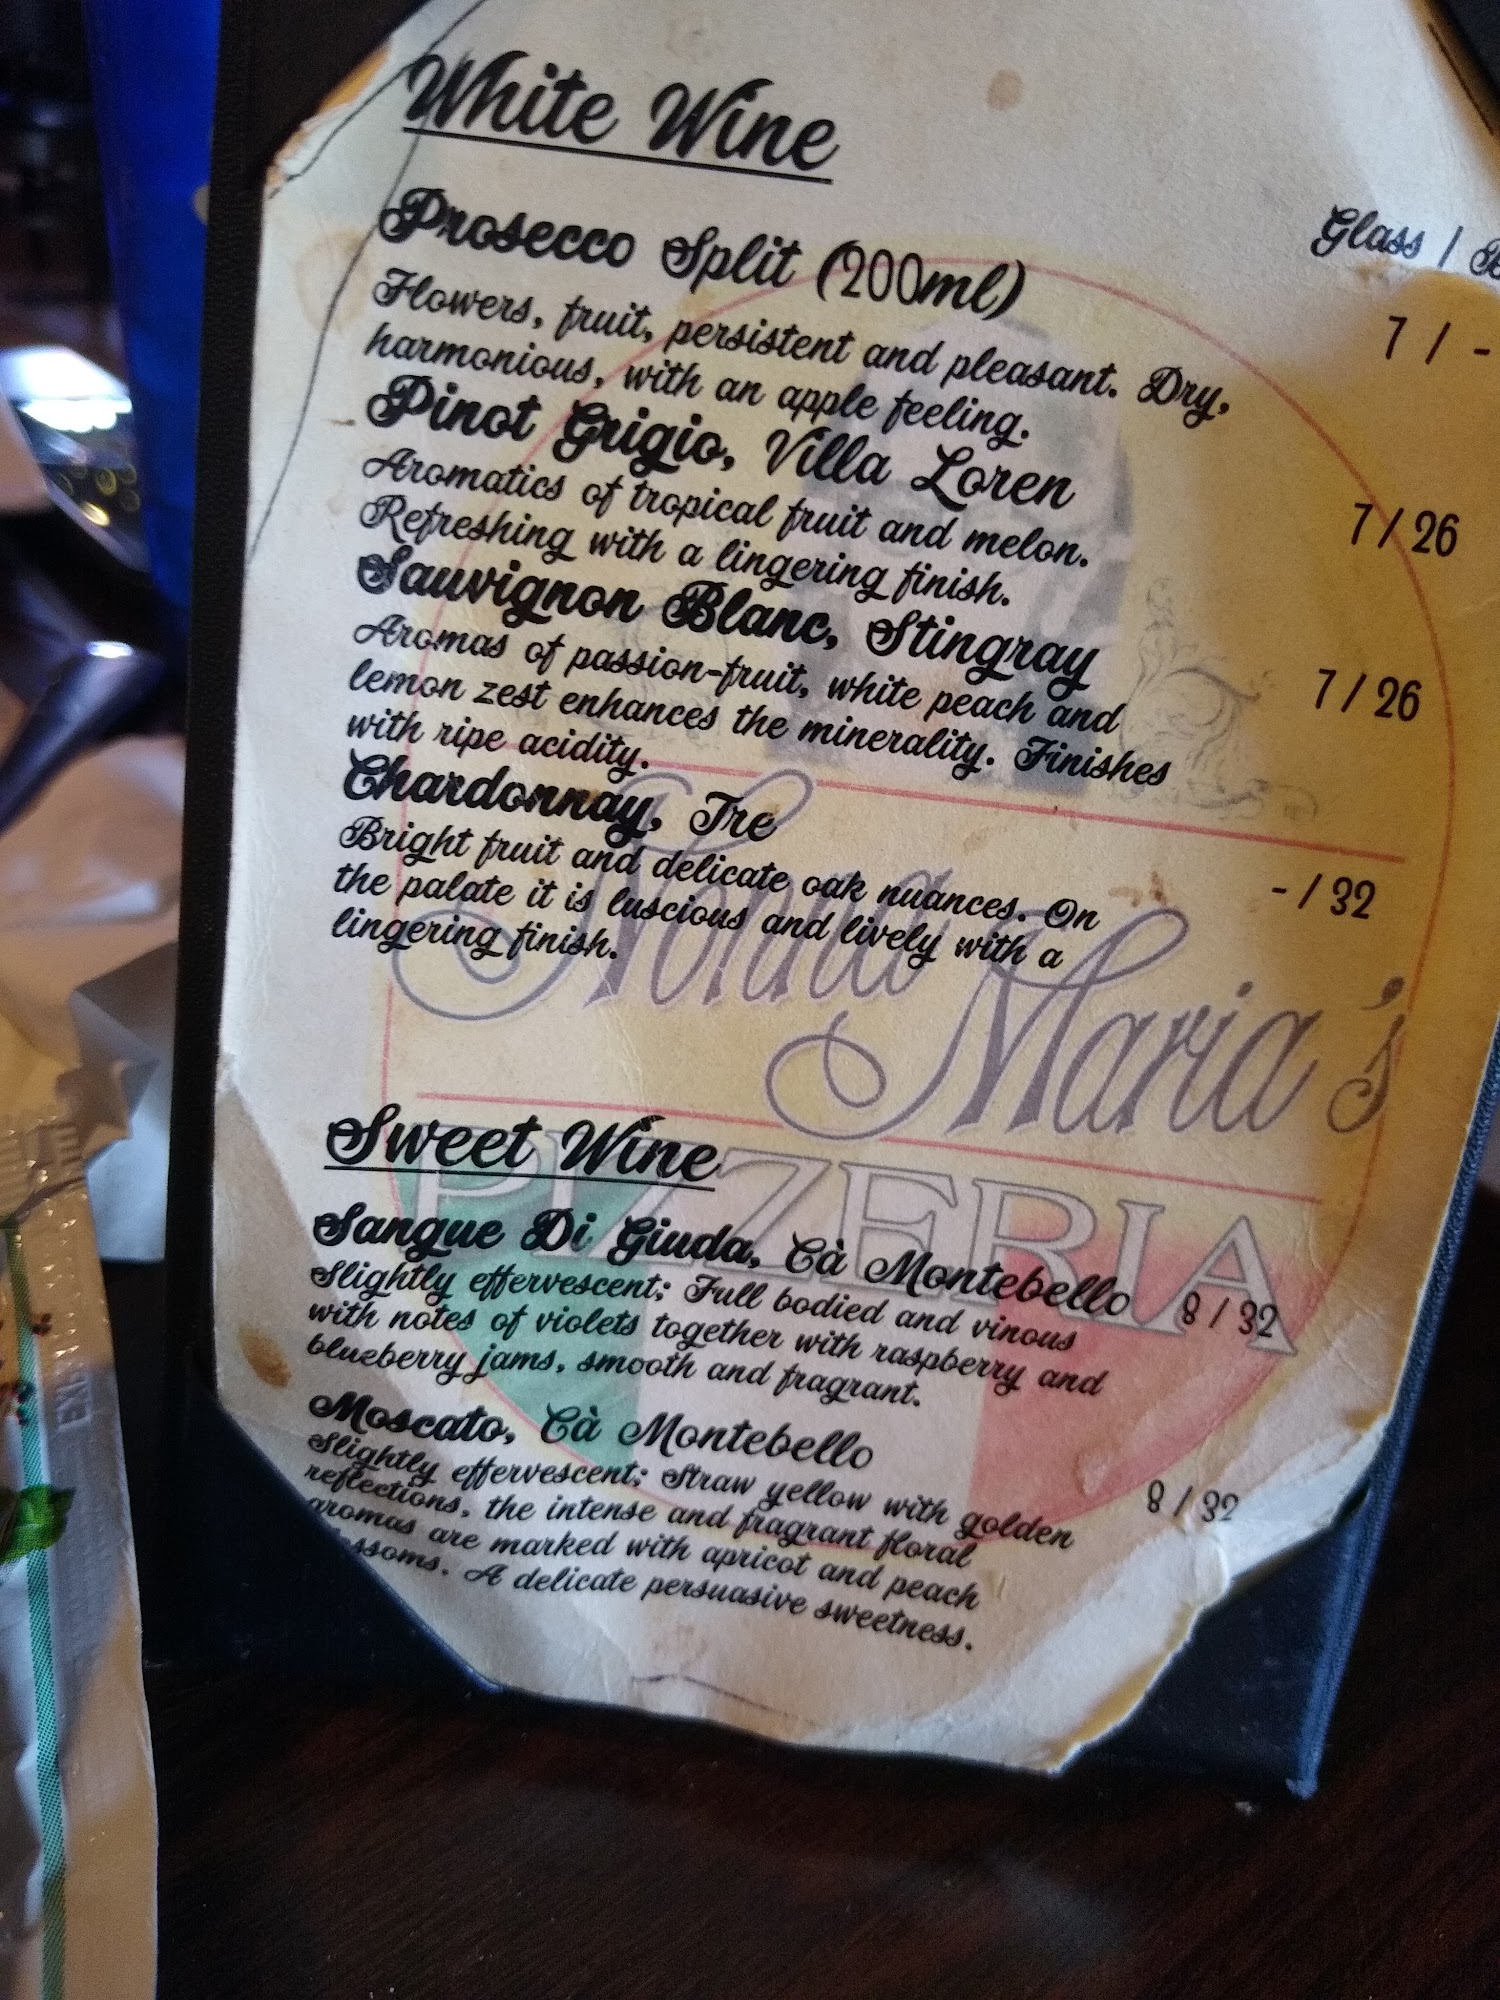 White Wine
Glass /
Prosecco Split (200ml) 7 / -
Flowers, fruit, persistent and pleasant. Dry,
harmonious, with an apple feeling.
Pinot Grigio, Villa Loren 7 / 26
Aromatics of tropical fruit and melon.
Refreshing with a lingering finish.
Sauvignon Blanc, Stingray 7 / 26
Aromas of passion-fruit, white peach and
lemon zest enhances the minerality. Finishes
with ripe acidity.
Chardonnay, Tre - / 32
Bright fruit and delicate oak nuances. On
the palate it is luscious and lively with a
lingering finish.
Nonna Maria's
PIZZERIA
Sweet Wine
Sangue Di Giuda, Cà Montebello 8 / 32
Slightly effervescent; Full bodied and vinous
with notes of violets together with raspberry and
blueberry jams, smooth and fragrant.
Moscato, Cà Montebello 8 / 32
Slightly effervescent; Straw yellow with golden
reflections, the intense and fragrant floral
aromas are marked with apricot and peach
ssoms. A delicate persuasive sweetness.